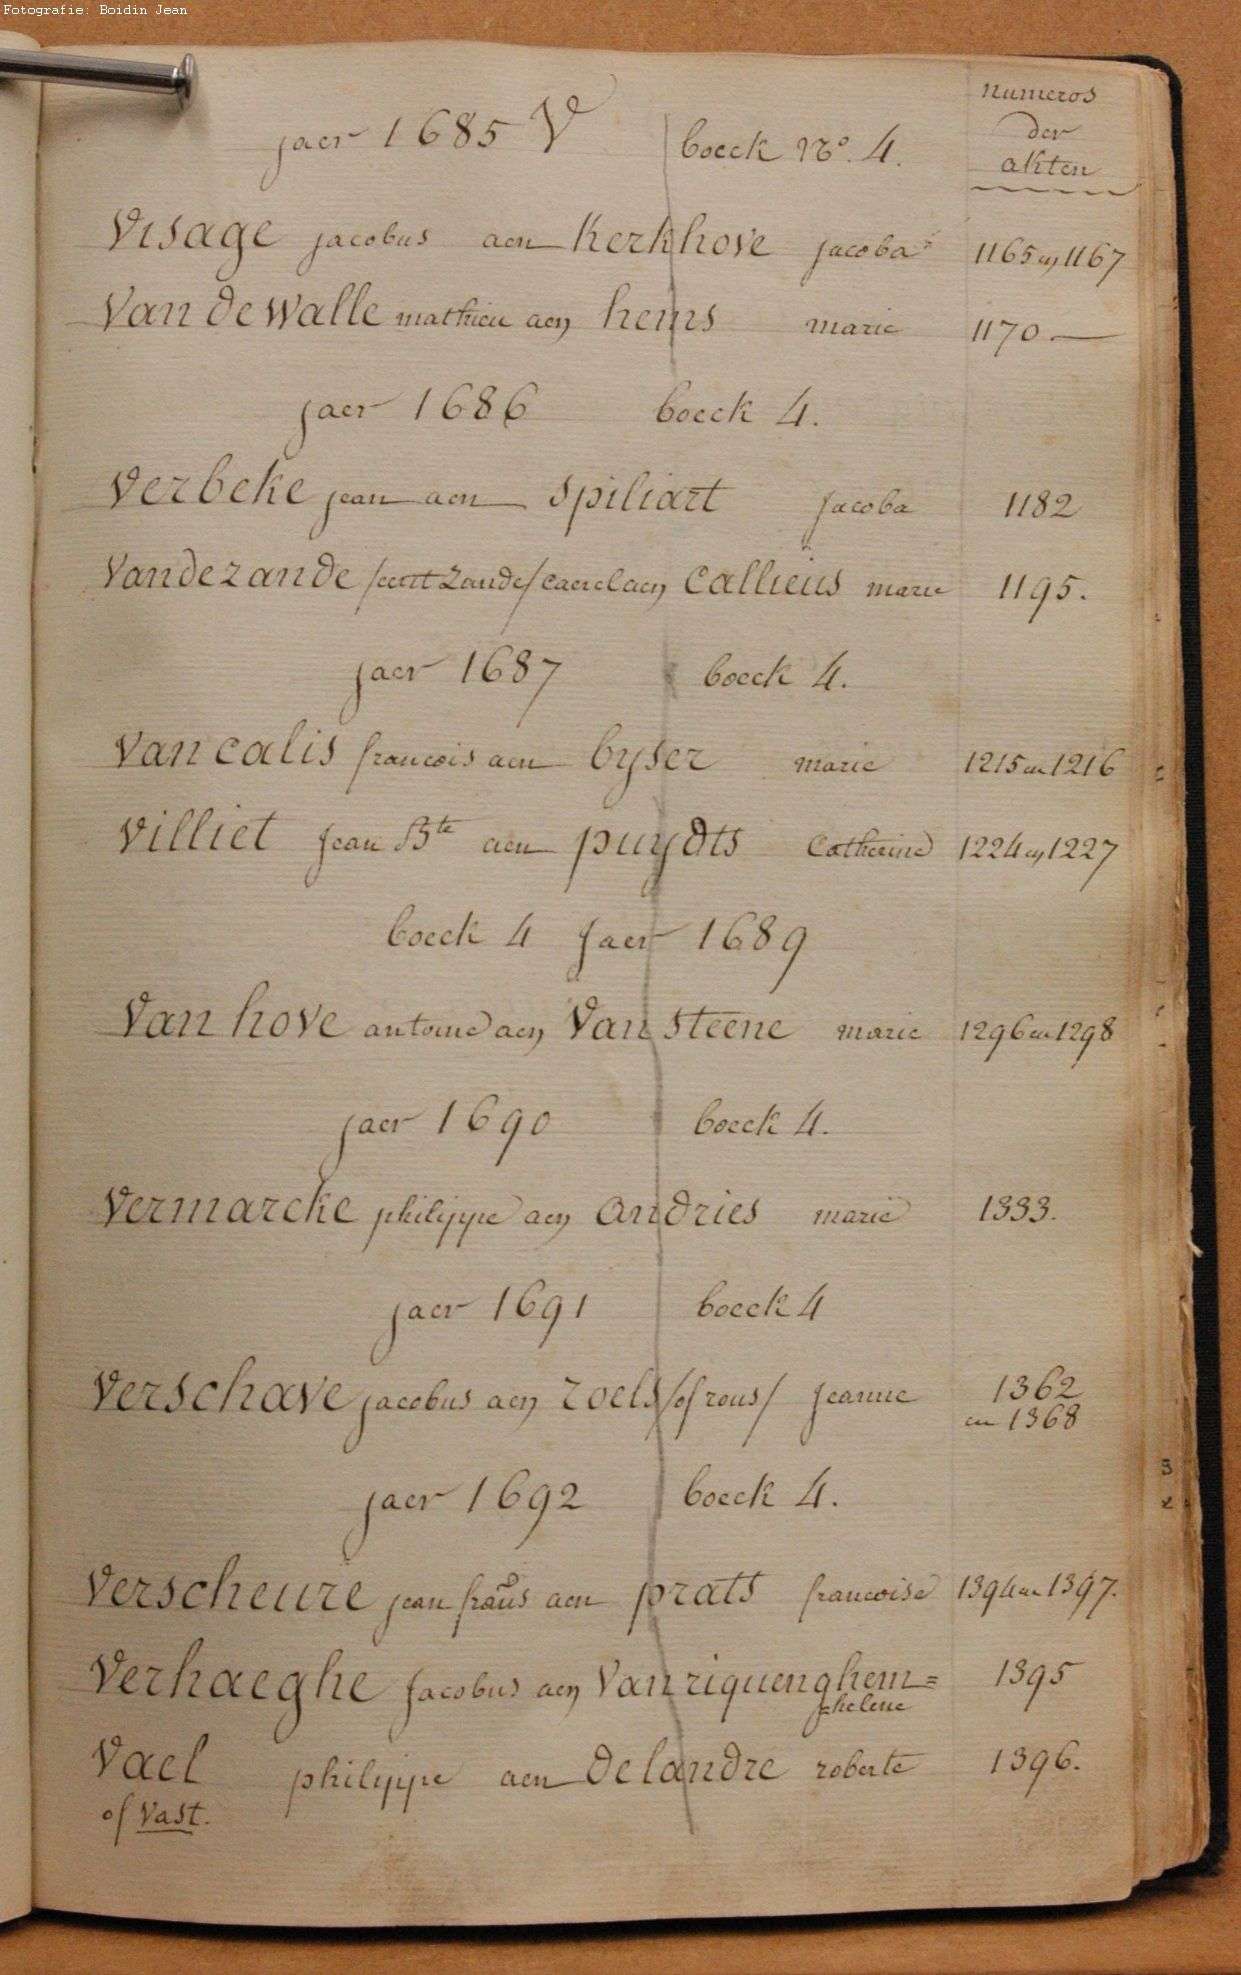 Fotografie: Boidin Jean
numeros
der
akten
jaer 1685 V boeck No. 4.
Visage jacobus aen Kerkhove jacoba 1165 en 1167
Van de Walle mathieu aen hems marie 1170 —
jaer 1686 boeck 4.
Verbeke jean aen Spiliart jacoba 1182
Vandezande /cent Zande/ caerel aen Callieus marie 1195.
jaer 1687 boeck 4.
Van calis francois aen byser marie 1215 en 1216
Villiet Jean Bte aen puydts Catherine 1224 en 1227
boeck 4 Jaer 1689
Van hove antoine aen Van Steene marie 1296 en 1298
jaer 1690 boeck 4.
Vermarcke philippe aen Andries marie 1333.
jaer 1691 boeck 4
Verschave jacobus aen roels /of rous/ Jeanne 1362
en 1368
jaer 1692 boeck 4.
Verscheure jean fraus aen prats francoise 1394 en 1397.
Verhaeghe Jacobus aen Van riquenghem= 1395
=helene
Vael philippe aen delandre roberte 1396.
of Vast.